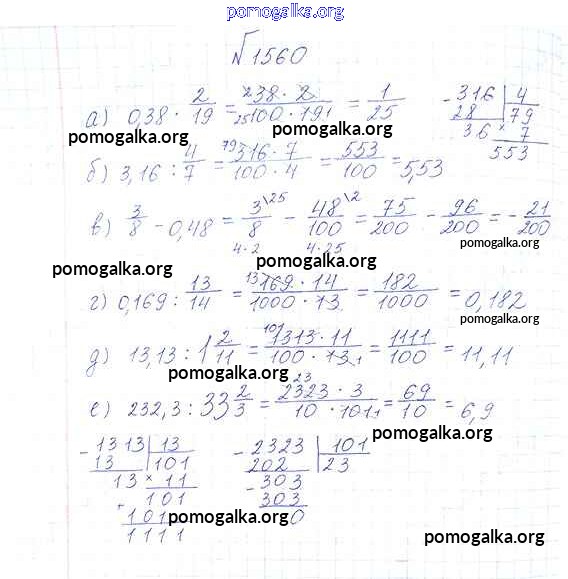 pomogalka.org
№1560
а) 0,38 · 2/19 = 38 · 2 / 100 · 19 = 1/25
pomogalka.org pomogalka.org
б) 3,16 : 4/7 = 316 · 7 / 100 · 4 = 553/100 = 5,53
pomogalka.org
в) 3/8 - 0,48 = 3/8 - 48/100 = 75/200 - 96/200 = - 21/200
4·2 4·25
pomogalka.org
pomogalka.org
г) 0,169 : 13/14 = 169 · 14 / 1000 · 13 = 182/1000 = 0,182
pomogalka.org
д) 13,13 : 1 2/11 = 1313 · 11 / 100 · 13 = 1111/100 = 11,11
pomogalka.org
е) 232,3 : 33 2/3 = 2323 · 3 / 10 · 101 = 69/10 = 6,9
pomogalka.org
316 | 4
28 | 79
36 × 7
553
- 1313 | 13
13 | 101
13 × 11
101
+ 101
1111
- 2323 | 101
202 | 23
- 303
303
0
pomogalka.org
pomogalka.org